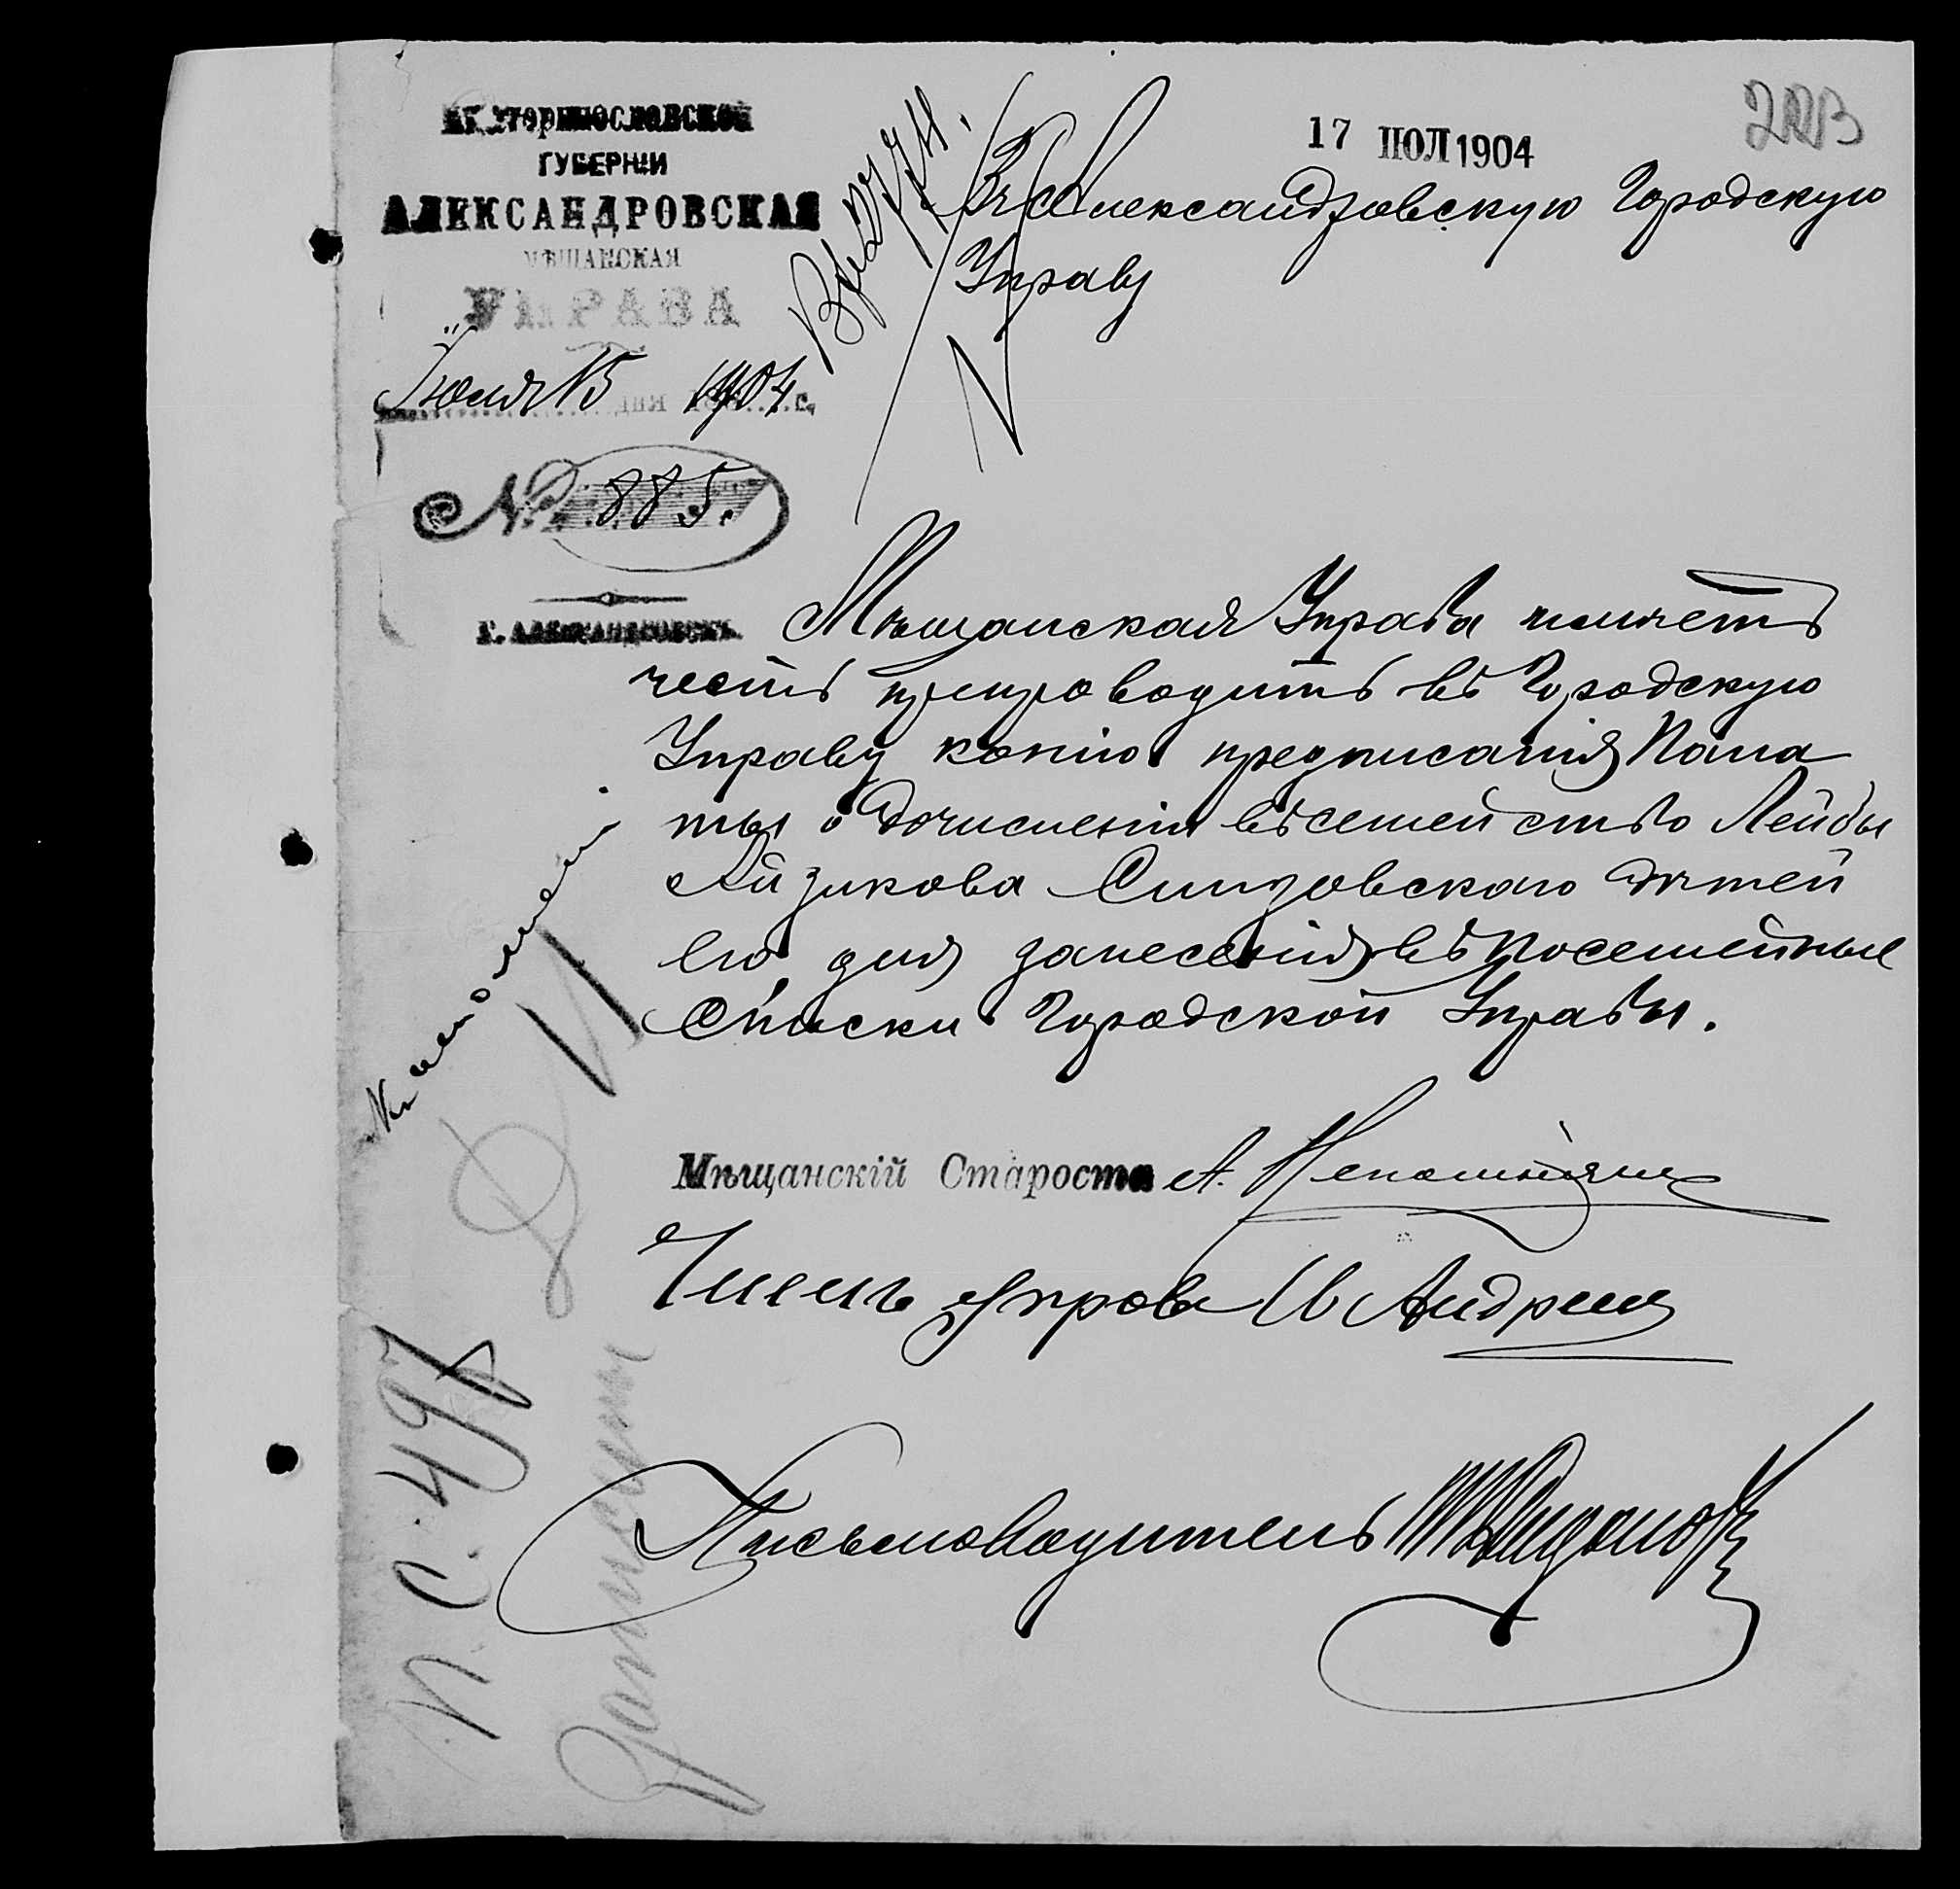 Екатеринославской
ГУБЕРНІИ
АЛЕКСАНДРОВСКАЯ
МѢЩАНСКАЯ
УПРАВА
Іюля 15 дня 1904 г.
№ 885.
Г. АЛЕКСАНДРОВСКЪ.
17 ІЮЛ 1904
Въ Александровскую Городскую
Управу
Мѣщанская Управа имѣетъ
честь препроводить въ Городскую
Управу копію предписанія Пала
ты о дочисленіи въ семейство Лейбы
Айзикова Синдовскаго дѣтей
его, для занесенія въ посемейные
списки Городской Управы.
Мѣщанскій Староста А.
Членъ Управы Андрющ
Письмоводитель
Къ исполнен
П. С. 497